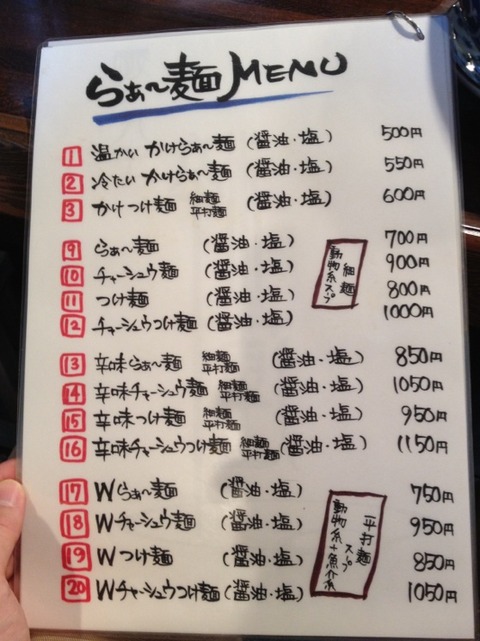 らぁ〜麺 MENU
1 温かい かけらぁ〜麺 (醤油・塩) 500円
2 冷たい かけらぁ〜麺 (醤油・塩) 550円
3 かけつけ麺 細麺 平打麺 (醤油・塩) 600円
9 らぁ〜麺 (醤油・塩) 700円
10 チャーシュウ麺 (醤油・塩) 900円
11 つけ麺 (醤油・塩) 800円
12 チャーシュウつけ麺 (醤油・塩) 1000円
細麺
動物系スープ
13 辛味らぁ〜麺 細麺 平打麺 (醤油・塩) 850円
14 辛味チャーシュウ麺 細麺 平打麺 (醤油・塩) 1050円
15 辛味つけ麺 細麺 平打麺 (醤油・塩) 950円
16 辛味チャーシュウつけ麺 細麺 平打麺 (醤油・塩) 1150円
17 Wらぁ〜麺 (醤油・塩) 750円
18 Wチャーシュウ麺 (醤油・塩) 950円
19 Wつけ麺 (醤油・塩) 850円
20 Wチャーシュウつけ麺 (醤油・塩) 1050円
平打麺
スープ
動物系+魚介系